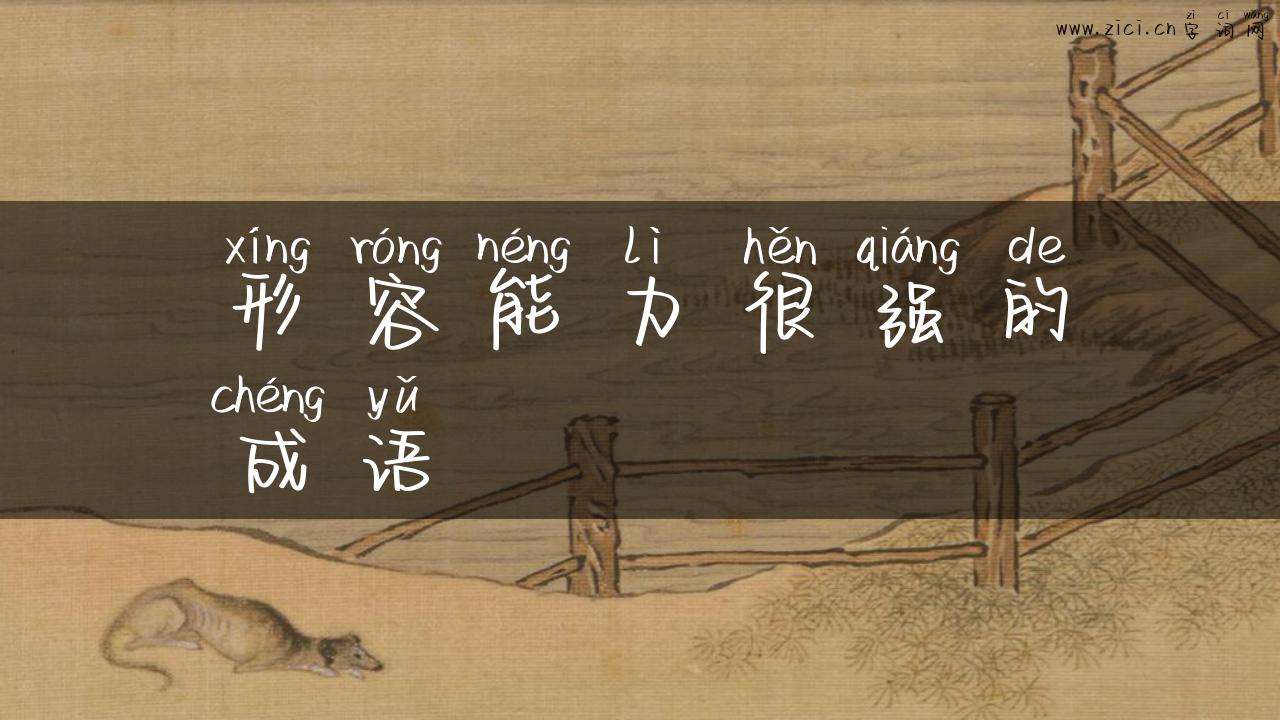 zi ci wang
www.zici.cn 字词网
xíng róng néng lì hěn qiáng de
形容能力很强的
chéng yǔ
成语